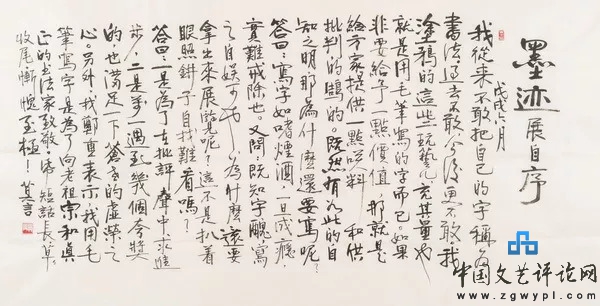 墨迹展自序
戊戌六月
我從来不敢把自己的字稱為
書法過去不敢今後更不敢我
塗鴉的這些玩藝儿充其量也
就是用毛筆寫的字而已。如果
非要給予一點價值那就是
給方家提供一點笑料和供
批判的鵠的。既然有如此的自
知之明那為什麼還要寫呢?
答曰:寫字如嗜煙酒一旦成癮,
實難戒除也。又問:既知字醜,寫
之自娱可也為什麼還要
拿出來展覽呢?這不是扒着
眼照鏡子自找難看嗎?
答曰:一是為了在批評聲中求進
步,二是萬一遇到幾個夸獎
的,也滿足一下蒼老的虛榮之
心。另外,我鄭重表示,我用毛
筆寫字是為了向老祖宗和真
正的書法家致敬。短話長
收尾慚愧至極! 莫言
中国文艺评论网
www.zgwypl.com